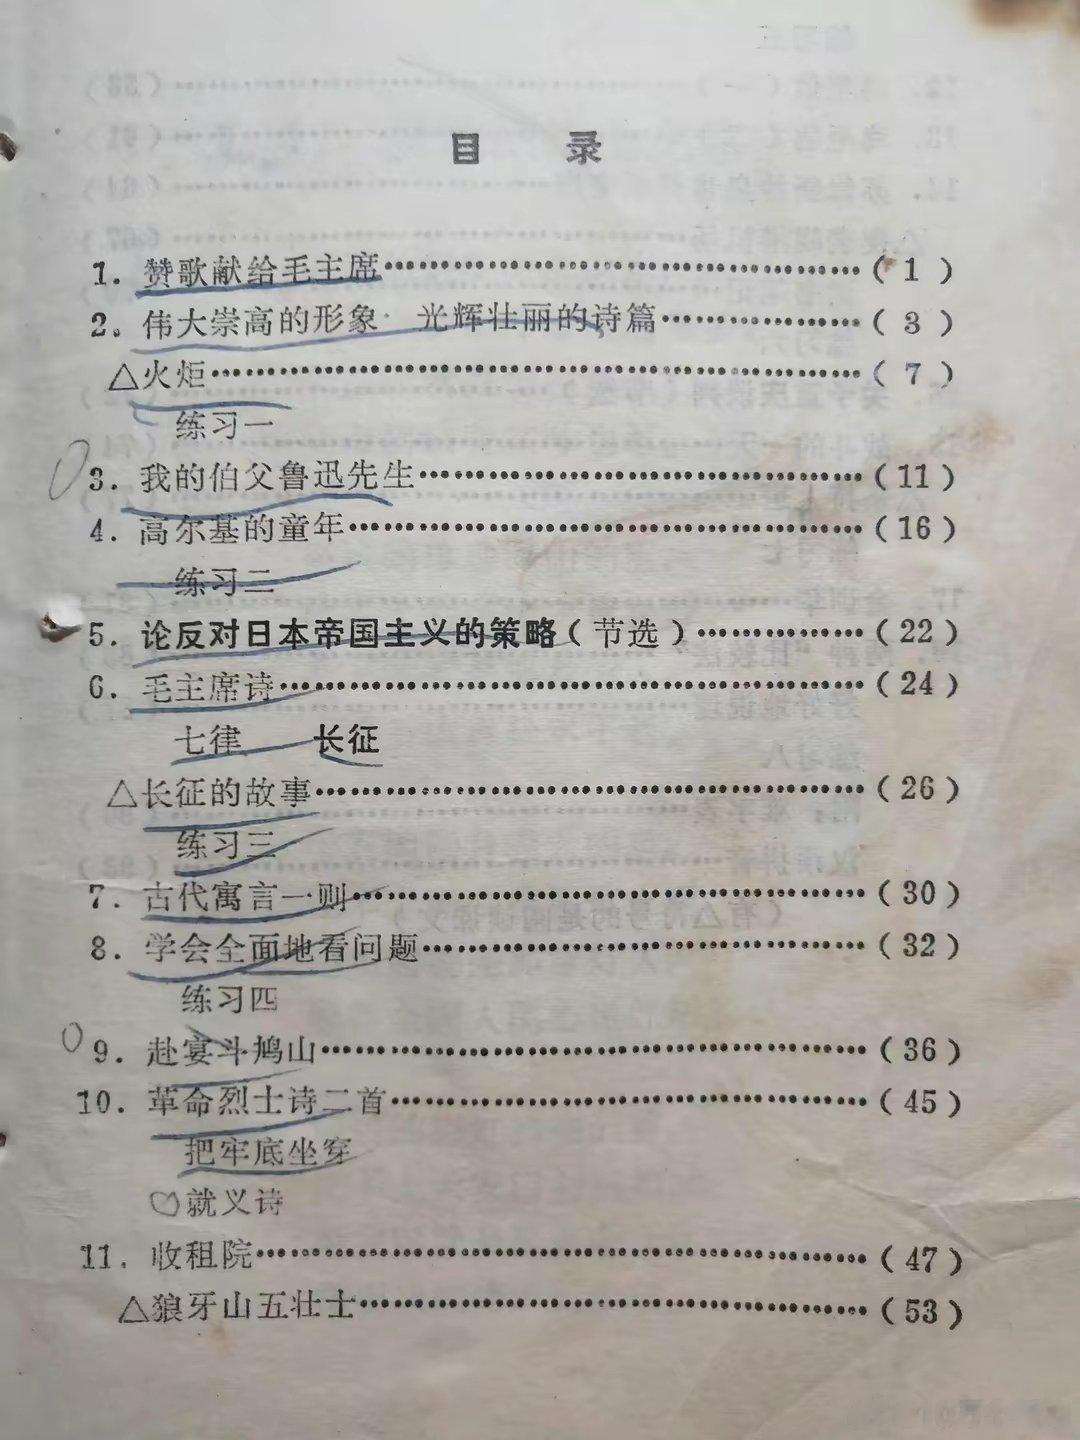 目 录
1. 赞歌献给毛主席………………………………(1)
2. 伟大崇高的形象 光辉壮丽的诗篇……………(3)
△火炬………………………………………………(7)
练习一
3. 我的伯父鲁迅先生……………………………(11)
4. 高尔基的童年…………………………………(16)
练习二
5. 论反对日本帝国主义的策略(节选)…………(22)
6. 毛主席诗………………………………………(24)
七律 长征
△长征的故事………………………………………(26)
练习三
7. 古代寓言一则…………………………………(30)
8. 学会全面地看问题……………………………(32)
练习四
9. 赴宴斗鸠山……………………………………(36)
10. 革命烈士诗二首………………………………(45)
把牢底坐穿
就义诗
11. 收租院…………………………………………(47)
△狼牙山五壮士……………………………………(53)